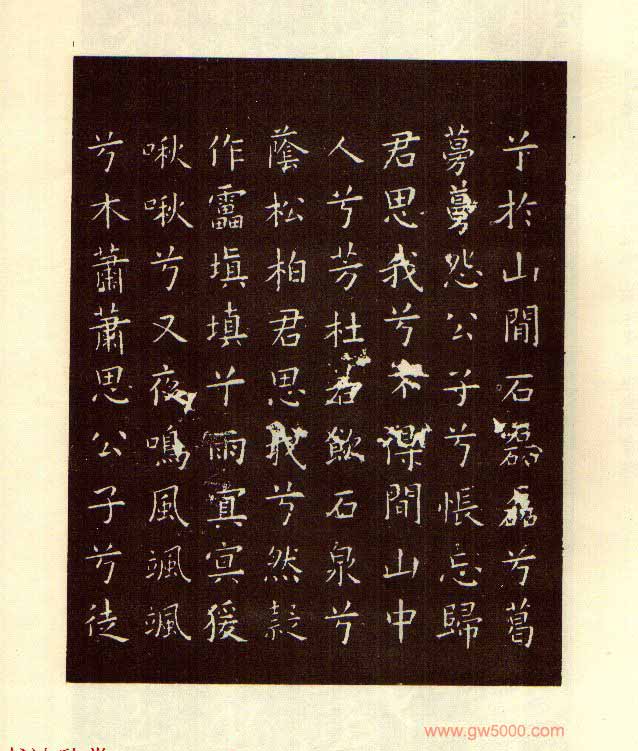 兮於山閒石磊磊兮葛
蔓蔓怨公子兮悵忘歸
君思我兮不得間山中
人兮芳杜若飲石泉兮
蔭松柏君思我兮然疑
作靁填填兮雨冥冥猨
啾啾兮又夜鳴風颯颯
兮木蕭蕭思公子兮徒
www.gw5000.com